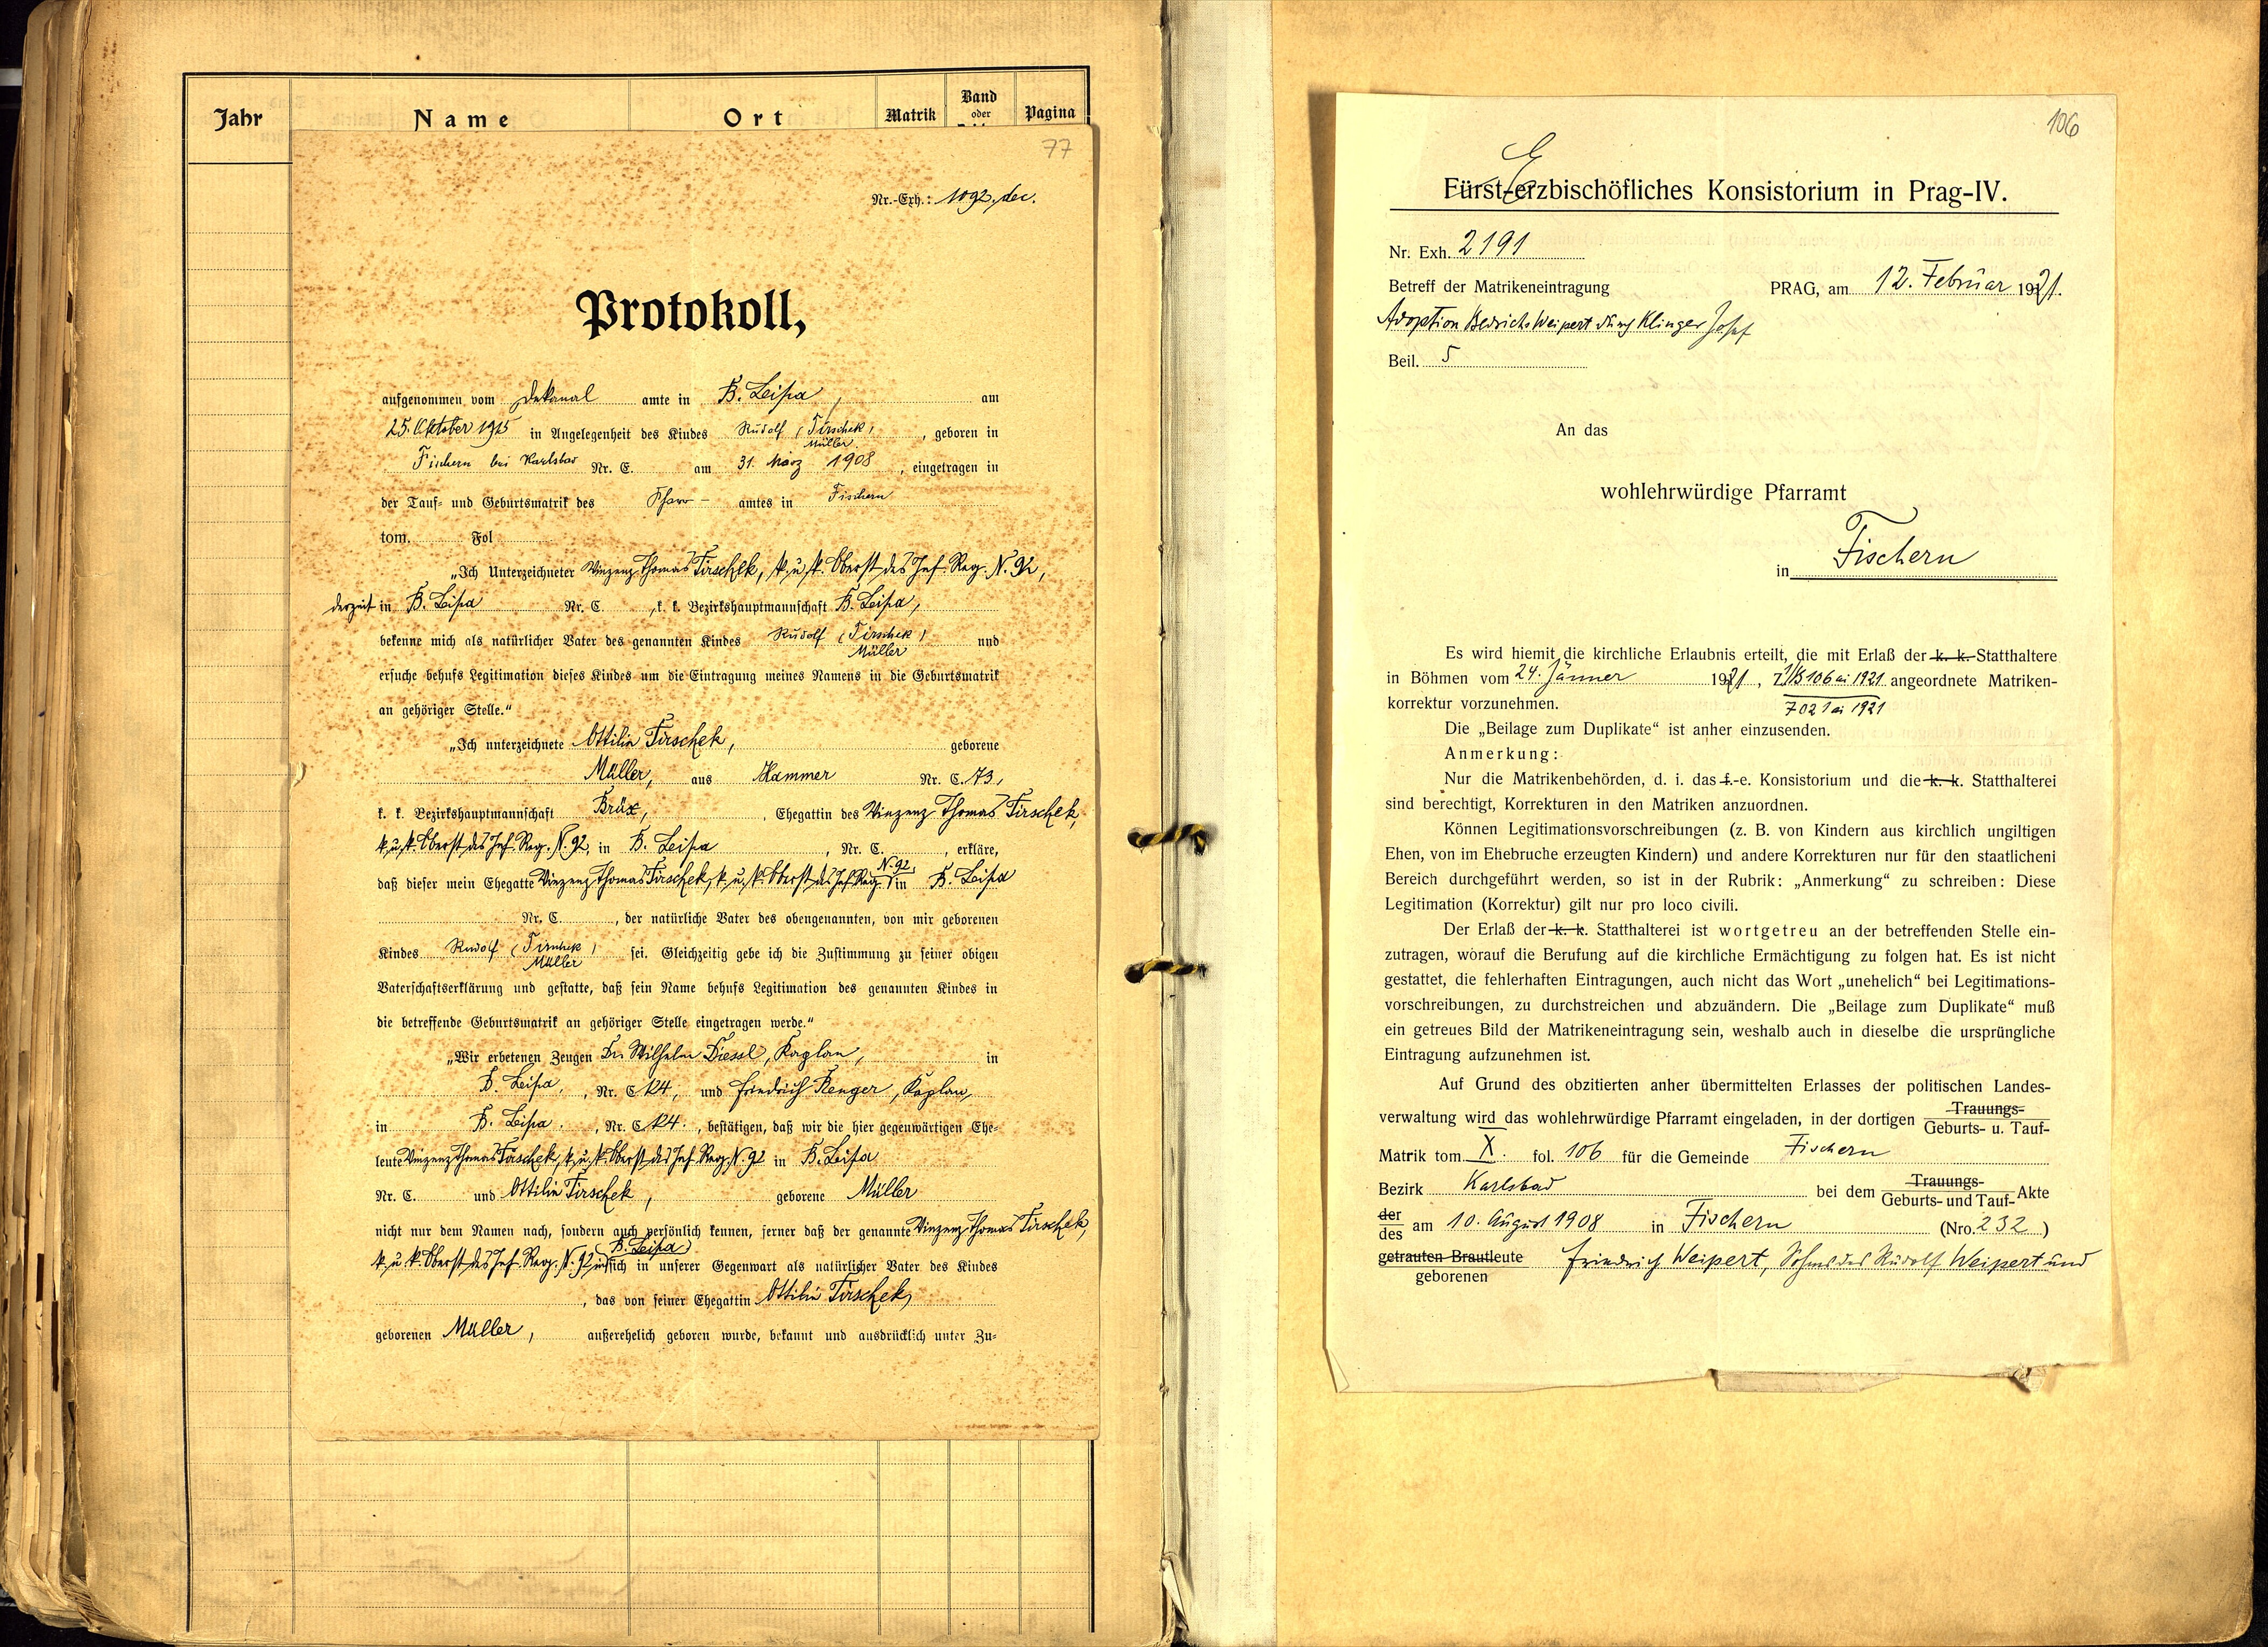 Jahr Name Ort Matrik Band oder Pagina
77
Nr.-Exh.: 1092. dec.
Protokoll,
aufgenommen vom Dekanal amte in B. Leipa, am
25. Oktober 1915 in Angelegenheit des Kindes Rudolf (Tirschek) Müller, geboren in
Fischern bei Karlsbad Nr. C. am 31. März 1908, eingetragen in
der Tauf- und Geburtsmatrik des Pfarr- amtes in Fischern
tom. Fol
„Ich Unterzeichneter Vinzenz Thomas Tirschek, k. u. k. Oberst des Inf. Reg. N. 92,
derzeit in B. Leipa Nr. C. , k. k. Bezirkshauptmannschaft B. Leipa,
bekenne mich als natürlicher Vater des genannten Kindes Rudolf (Tirschek) Müller und
ersuche behufs Legitimation dieses Kindes um die Eintragung meines Namens in die Geburtsmatrik
an gehöriger Stelle.“
„Ich unterzeichnete Ottilie Tirschek, geborene
Müller, aus Hammer Nr. C. 73,
k. k. Bezirkshauptmannschaft Brüx, , Ehegattin des Vinzenz Thomas Tirschek,
k. u. k. Oberst des Inf. Reg. N. 92, in B. Leipa , Nr. C. , erkläre,
daß dieser mein Ehegatte Vinzenz Thomas Tirschek, k. u. k. Oberst des Inf. Reg. N. 92, in B. Leipa
Nr. C. , der natürliche Vater des obengenannten, von mir geborenen
Kindes Rudolf (Tirschek) Müller sei. Gleichzeitig gebe ich die Zustimmung zu seiner obigen
Vaterschaftserklärung und gestatte, daß sein Name behufs Legitimation des genannten Kindes in
die betreffende Geburtsmatrik an gehöriger Stelle eingetragen werde.“
„Wir erbetenen Zeugen Dr. Wilhelm Diessl, Kaplan, in
B. Leipa, , Nr. C 124, und Friedrich Renger, Kaplan,
in B. Leipa. , Nr. C. 124. , bestätigen, daß wir die hier gegenwärtigen Ehe-
leute Vinzenz Thomas Tirschek, k. u. k. Oberst des Inf. Reg. N. 92 in B. Leipa
Nr. C. und Ottilie Tirschek, geborene Müller
nicht nur dem Namen nach, sondern auch persönlich kennen, ferner daß der genannte Vinzenz Thomas Tirschek,
k. u. k. Oberst des Inf. Reg. N. 92 in B. Leipa sich in unserer Gegenwart als natürlicher Vater des Kindes
, das von seiner Ehegattin Ottilie Tirschek,
geborenen Müller, außerehelich geboren wurde, bekannt und ausdrücklich unter Zu-
106
Fürst-erzbischöfliches Konsistorium in Prag-IV.
Nr. Exh. 2191
Betreff der Matrikeneintragung PRAG, am 12. Februar 1921.
Adoption Bedrichs Weipert durch Klinger Josef
Beil. 5
An das
wohlehrwürdige Pfarramt
in Fischern
Es wird hiemit die kirchliche Erlaubnis erteilt, die mit Erlaß der k. k. Statthaltere
in Böhmen vom 24. Jänner 1921, Z. 1/B 106 ai 1921 angeordnete Matriken-
7021 ai 1921
korrektur vorzunehmen.
Die „Beilage zum Duplikate“ ist anher einzusenden.
Anmerkung:
Nur die Matrikenbehörden, d. i. das f.-e. Konsistorium und die k. k. Statthalterei
sind berechtigt, Korrekturen in den Matriken anzuordnen.
Können Legitimationsvorschreibungen (z. B. von Kindern aus kirchlich ungiltigen
Ehen, von im Ehebruche erzeugten Kindern) und andere Korrekturen nur für den staatlicheni
Bereich durchgeführt werden, so ist in der Rubrik: „Anmerkung“ zu schreiben: Diese
Legitimation (Korrektur) gilt nur pro loco civili.
Der Erlaß der k. k. Statthalterei ist wortgetreu an der betreffenden Stelle ein-
zutragen, worauf die Berufung auf die kirchliche Ermächtigung zu folgen hat. Es ist nicht
gestattet, die fehlerhaften Eintragungen, auch nicht das Wort „unehelich“ bei Legitimations-
vorschreibungen, zu durchstreichen und abzuändern. Die „Beilage zum Duplikate“ muß
ein getreues Bild der Matrikeneintragung sein, weshalb auch in dieselbe die ursprüngliche
Eintragung aufzunehmen ist.
Auf Grund des obzitierten anher übermittelten Erlasses der politischen Landes-
verwaltung wird das wohlehrwürdige Pfarramt eingeladen, in der dortigen Trauungs- Geburts- u. Tauf-
Matrik tom. X. fol. 106 für die Gemeinde Fischern
Bezirk Karlsbad bei dem Trauungs- Geburts- und Tauf- Akte
der des am 10. August 1908 in Fischern (Nro. 232)
getrauten Brautleute geborenen Friedrich Weipert, Sohnes des Rudolf Weipert und